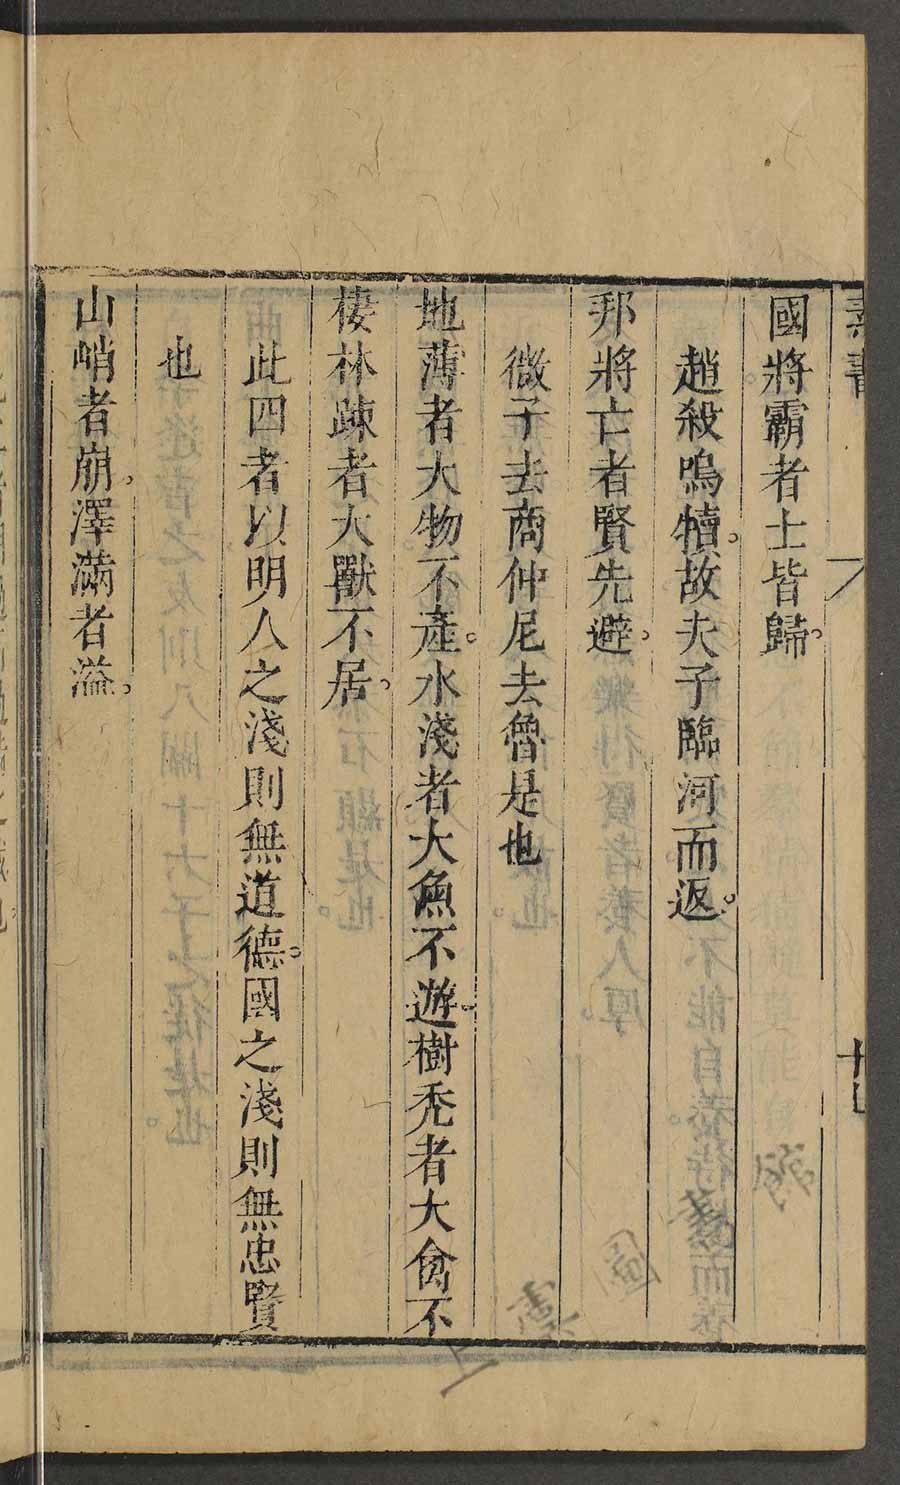 素書
十七
國將霸者士皆歸。
趙殺鳴犢。故夫子臨河而返。
邦將亡者賢先避。
微子去商仲尼去魯是也
地薄者大物不產。水淺者大魚不遊。樹禿者大禽不
棲林疎者大獸不居。
此四者以明人之淺則無道德。國之淺則無忠賢
也
山峭者崩。澤滿者溢。